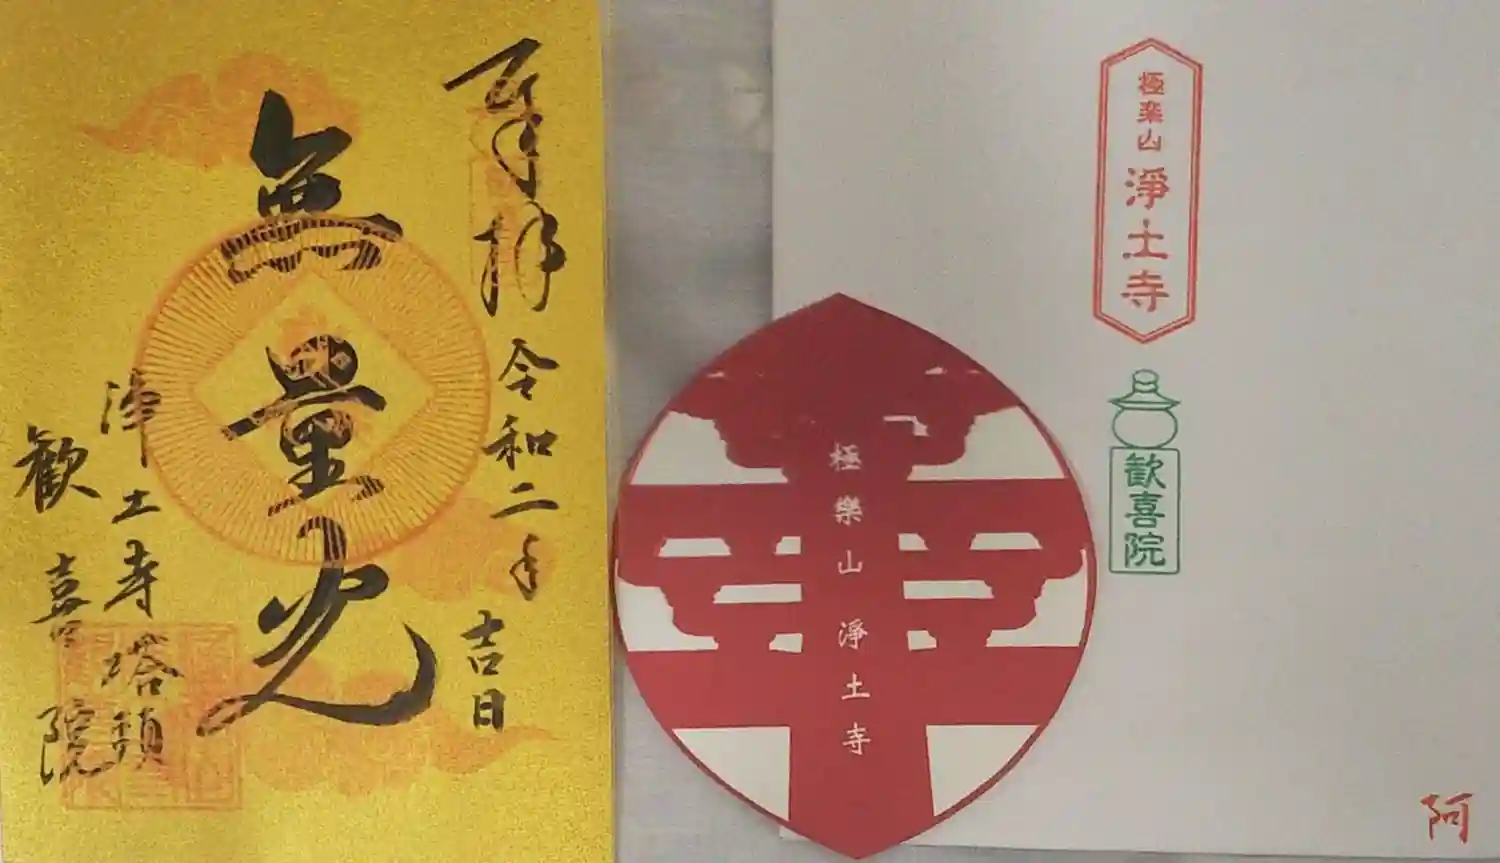 奉拝 令和二年 吉日
無量光
浄土寺塔頭
歓喜院
極樂山 淨土寺
極楽山 淨土寺
歓喜院
阿